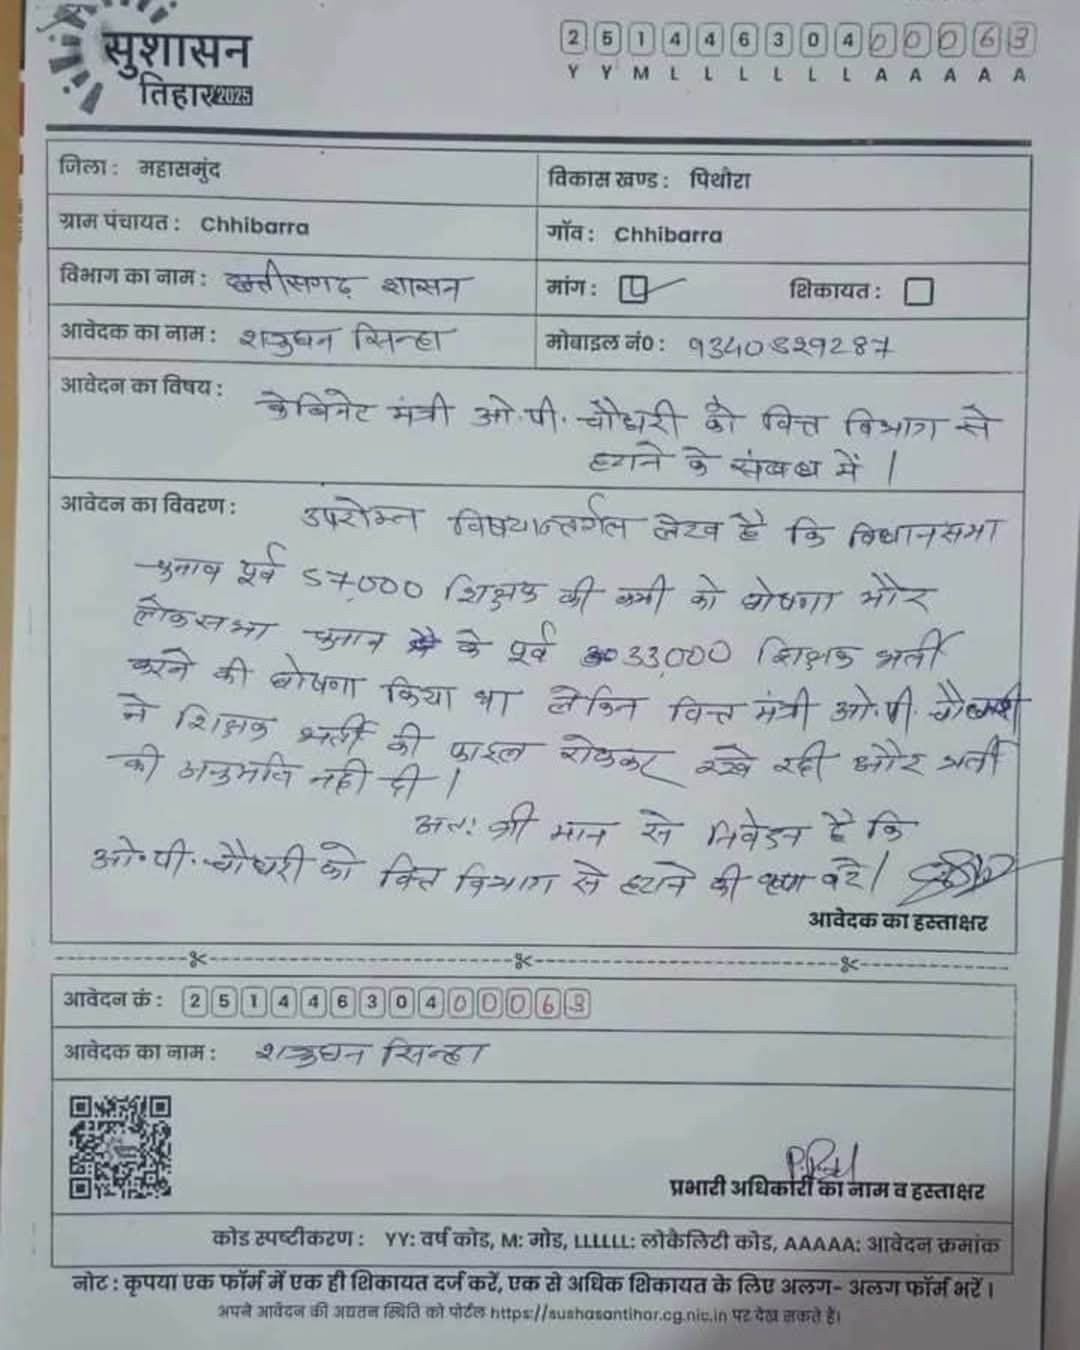 सुशासन
तिहार 2025
2 5 1 4 4 6 3 0 4 0 0 0 6 3
Y Y M L L L L L L A A A A A
जिला : महासमुंद
विकास खण्ड : पिथौरा
ग्राम पंचायत : Chhibarra
गॉव : Chhibarra
विभाग का नाम : छत्तीसगढ़ शासन
मांग : शिकायत :
आवेदक का नाम : शत्रुघन सिन्हा
मोबाइल नं० : 9340829287
आवेदन का विषय : केबिनेट मंत्री ओ.पी. चौधरी को वित्त विभाग से
हटाने के संबंध में |
आवेदन का विवरण : उपरोक्त विषयान्तर्गत लेख है कि विधानसभा
चुनाव पूर्व 57,000 शिक्षक की कमी को घोषणा और
लोकसभा चुनाव के पूर्व 33,000 शिक्षक भर्ती
करने की घोषणा किया था लेकिन वित्त मंत्री ओ.पी. चौधरी
ने शिक्षक भर्ती की फाइल रोककर रखे रही और भर्ती
की अनुमति नही दी |
अतः श्री मान से निवेदन है कि
ओ.पी. चौधरी को वित्त विभाग से हटाने की कृपा करे |
आवेदक का हस्ताक्षर
आवेदन क्रं : 2 5 1 4 4 6 3 0 4 0 0 0 6 3
आवेदक का नाम : शत्रुघन सिन्हा
प्रभारी अधिकारी का नाम व हस्ताक्षर
कोड स्पष्टीकरण : YY: वर्ष कोड, M: मोड, LLLLLL: लोकैलिटी कोड, AAAAA: आवेदन क्रमांक
नोट : कृपया एक फॉर्म में एक ही शिकायत दर्ज करें, एक से अधिक शिकायत के लिए अलग- अलग फॉर्म भरें ।
अपने आवेदन की अद्यतन स्थिति को पोर्टल https://sushasantihar.cg.nic.in पर देख सकते हैं।